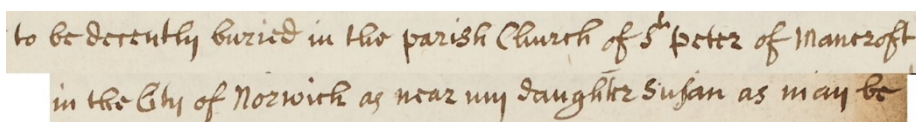 to be decently buried in the parish Church of St Peter of Mancroft
in the City of Norwich as near my daughter Susan as may be